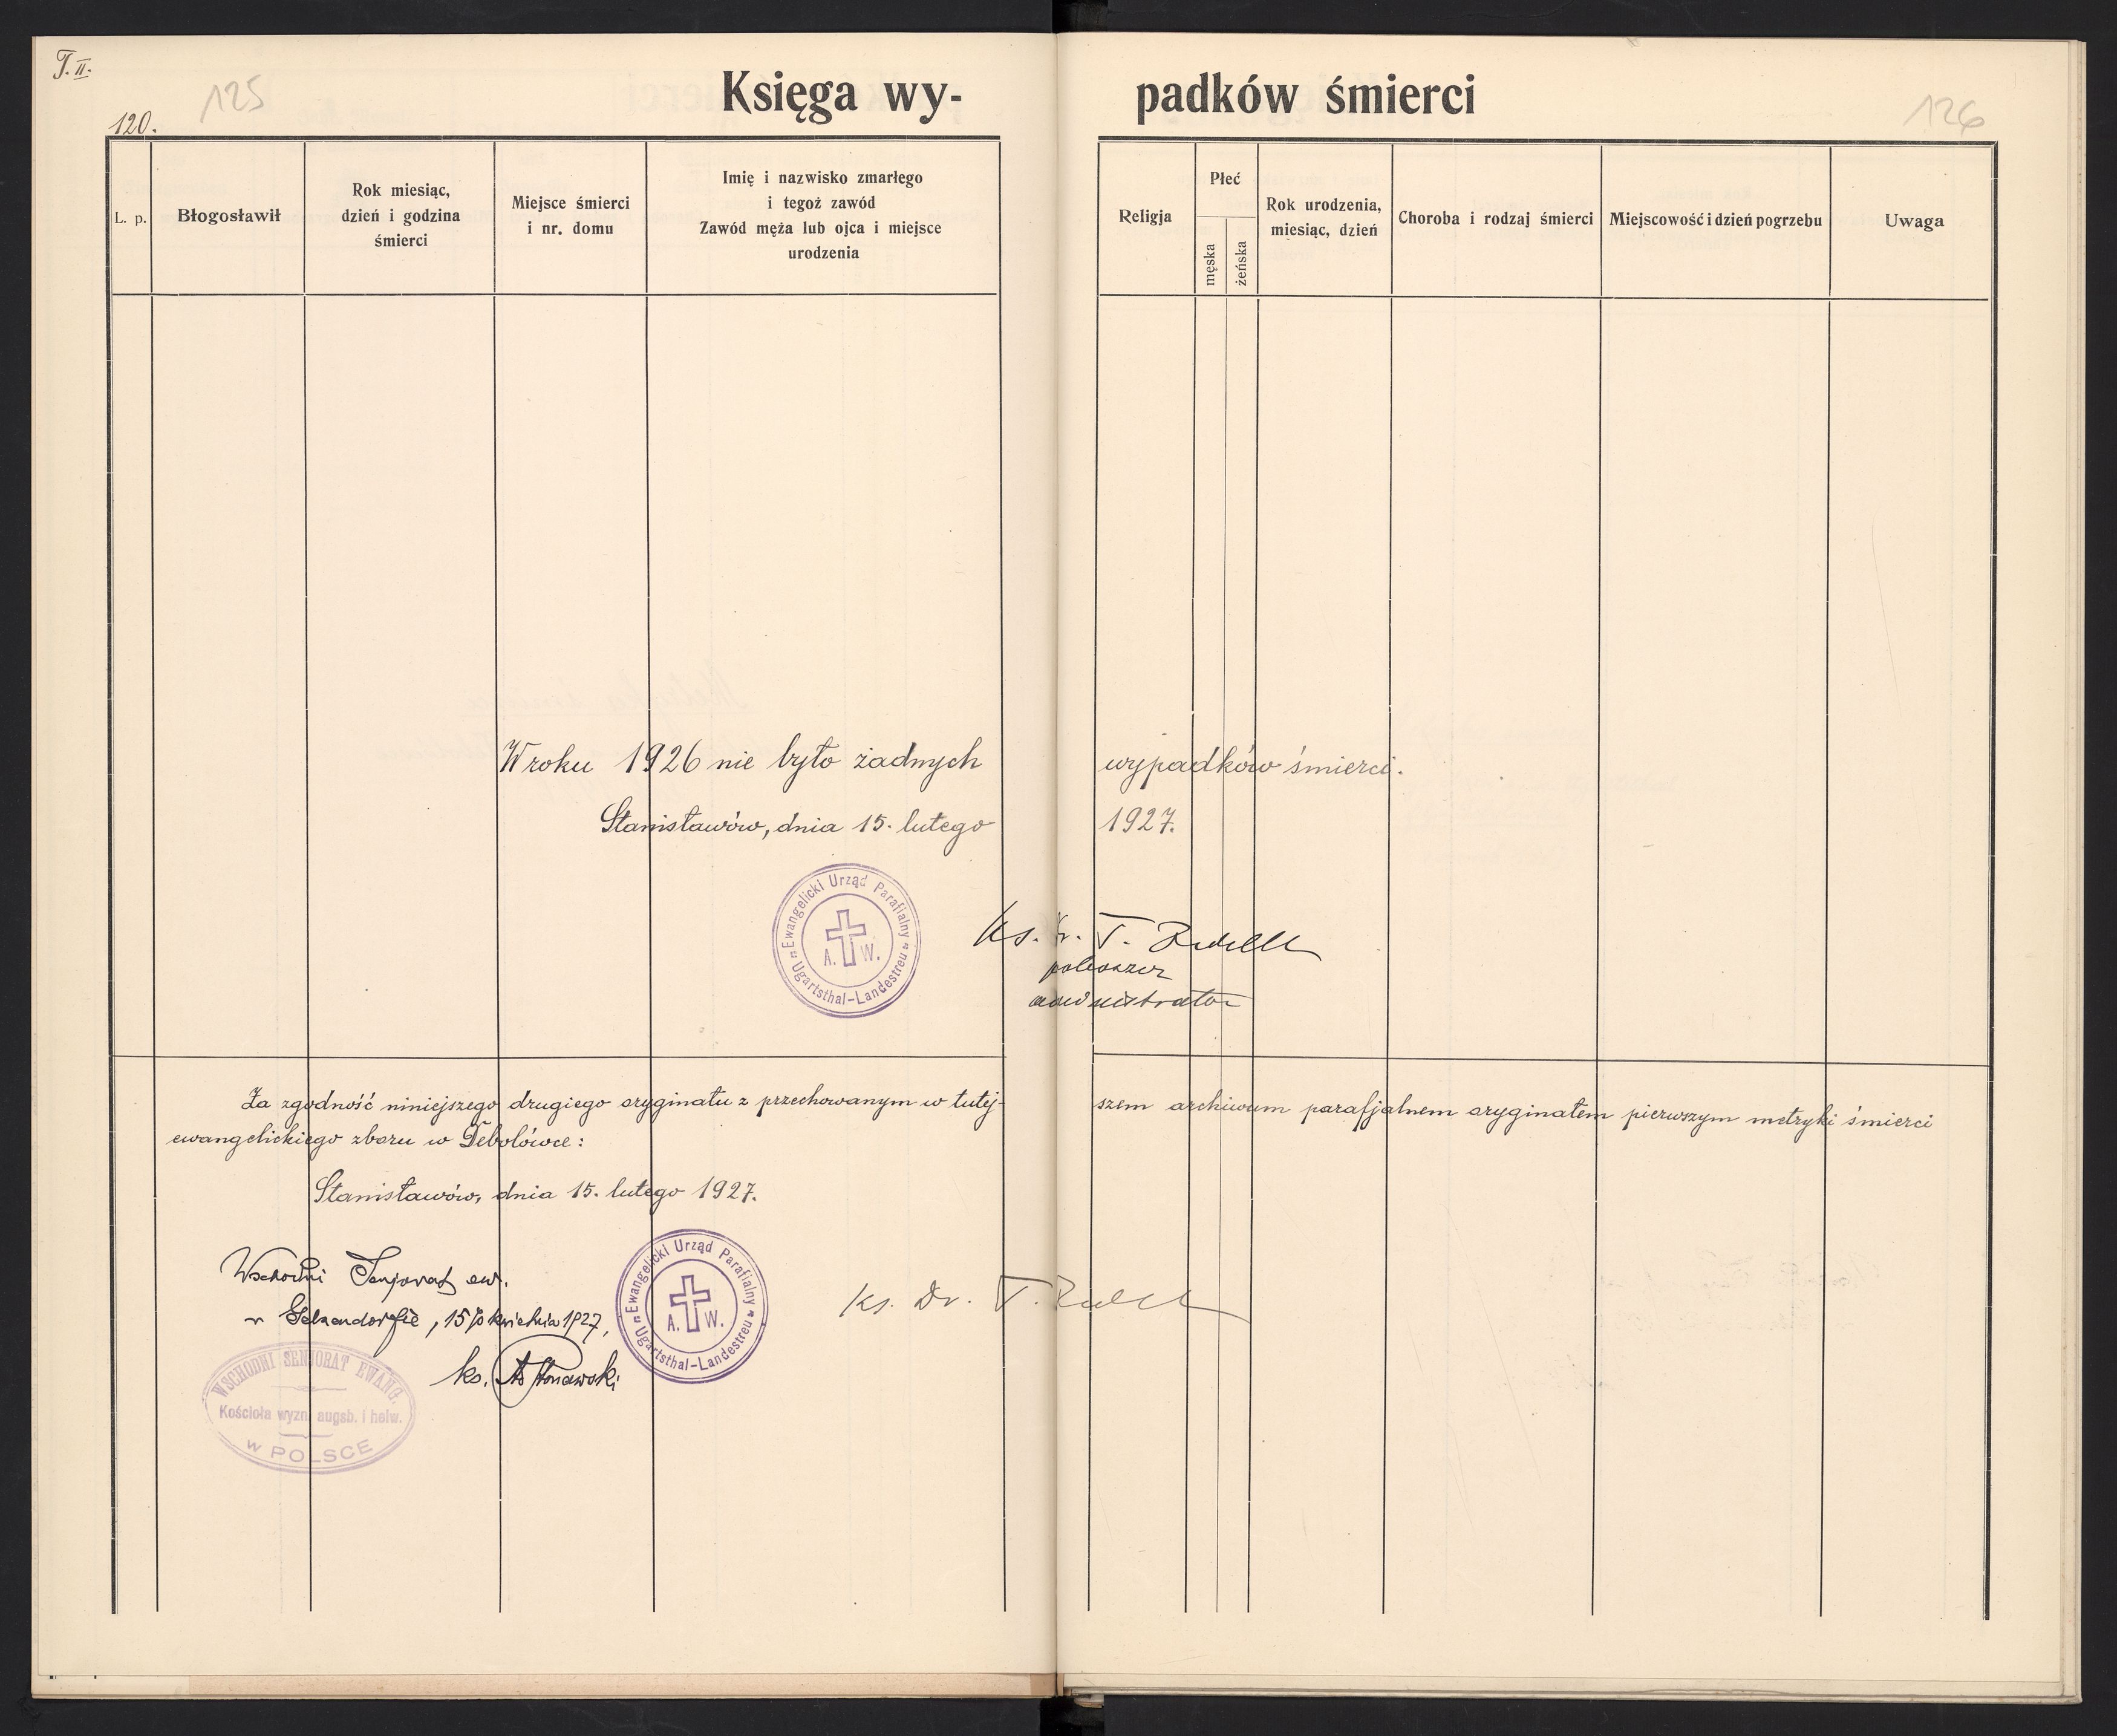 T. II.
125
120.
Księga wy-
padków śmierci
126
L. p.
Błogosławił
Rok miesiąc,
dzień i godzina
śmierci
Miejsce śmierci
i nr. domu
Imię i nazwisko zmarłego
i tegoż zawód
Zawód męża lub ojca i miejsce
urodzenia
Religja
Płeć
męska
żeńska
Rok urodzenia,
miesiąc, dzień
Choroba i rodzaj śmierci
Miejscowość i dzień pogrzebu
Uwaga
W roku 1926 nie było żadnych wypadków śmierci.
Stanisławów, dnia 15. lutego 1927.
Ewangelicki Urząd Parafialny
A. W.
Ugartsthal-Landestreu
Ks. Dr. T.
administrator
Za zgodność niniejszego drugiego oryginału z przechowanym w tutej- szem archiwum parafjalnem oryginałem pierwszym metryki śmierci
ewangelickiego zboru w Debolówce:
Stanisławów, dnia 15. lutego 1927.
Wschodni Senjorat ew.
w Gelsendorfie, 15/6 kwietnia 1927,
ks.
Ewangelicki Urząd Parafialny
A. W.
Ugartsthal-Landestreu
Ks. Dr. T.
WSCHODNI SENJORAT EWANG.
Kościoła wyzn. augsb. i helw.
W POLSCE